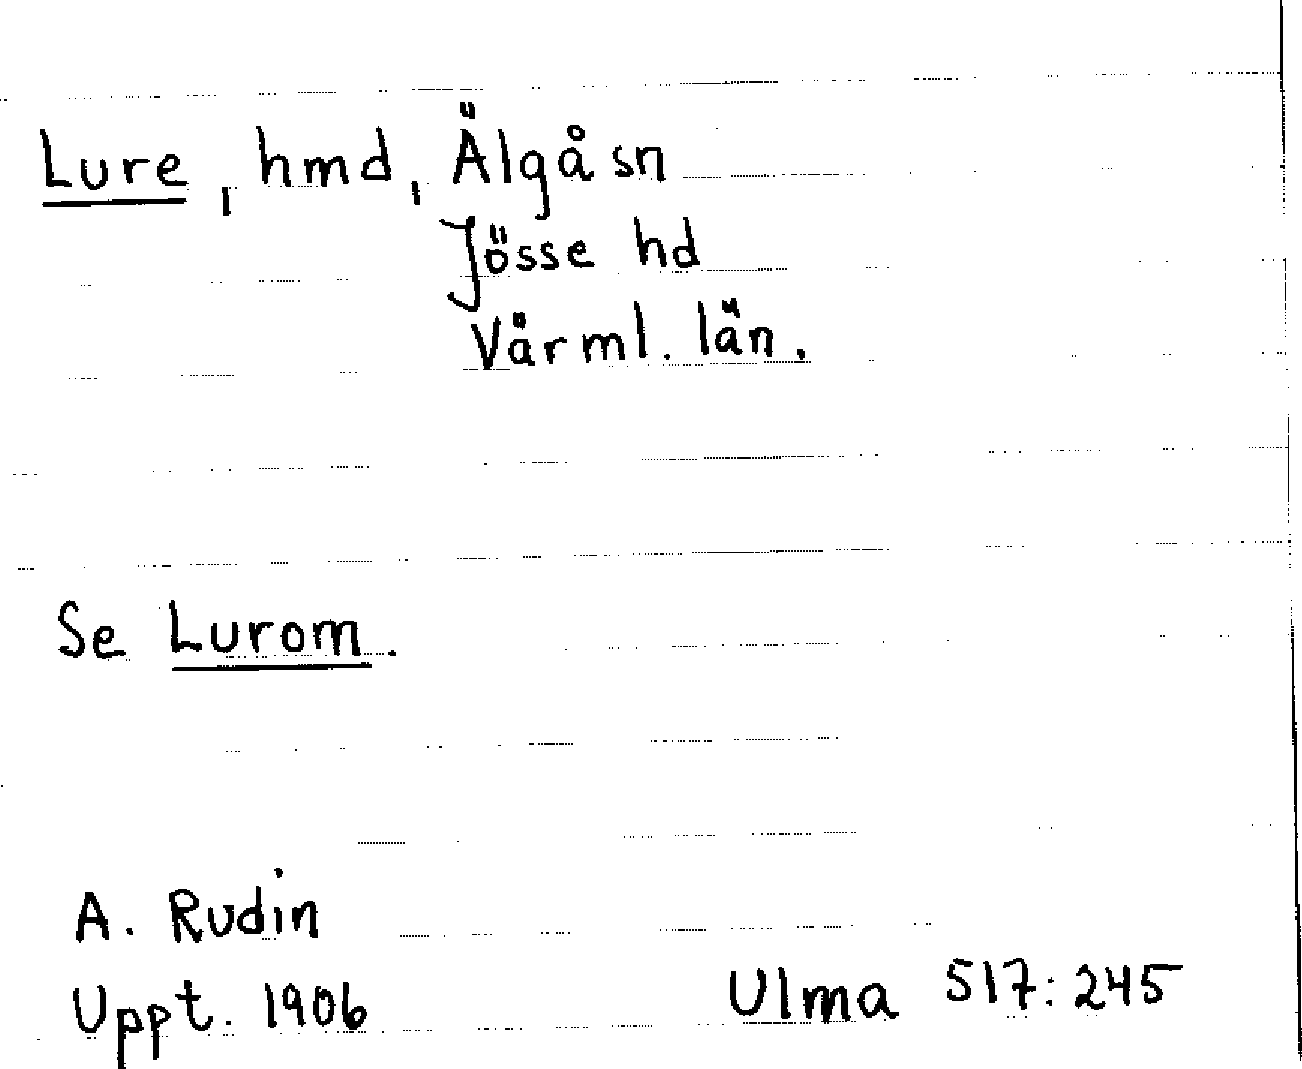 Lure, hmd, Älgå sn
Jösse hd
Värml. län.
Se Lurom.
A. Rudin
Uppt. 1906
Ulma 517:245